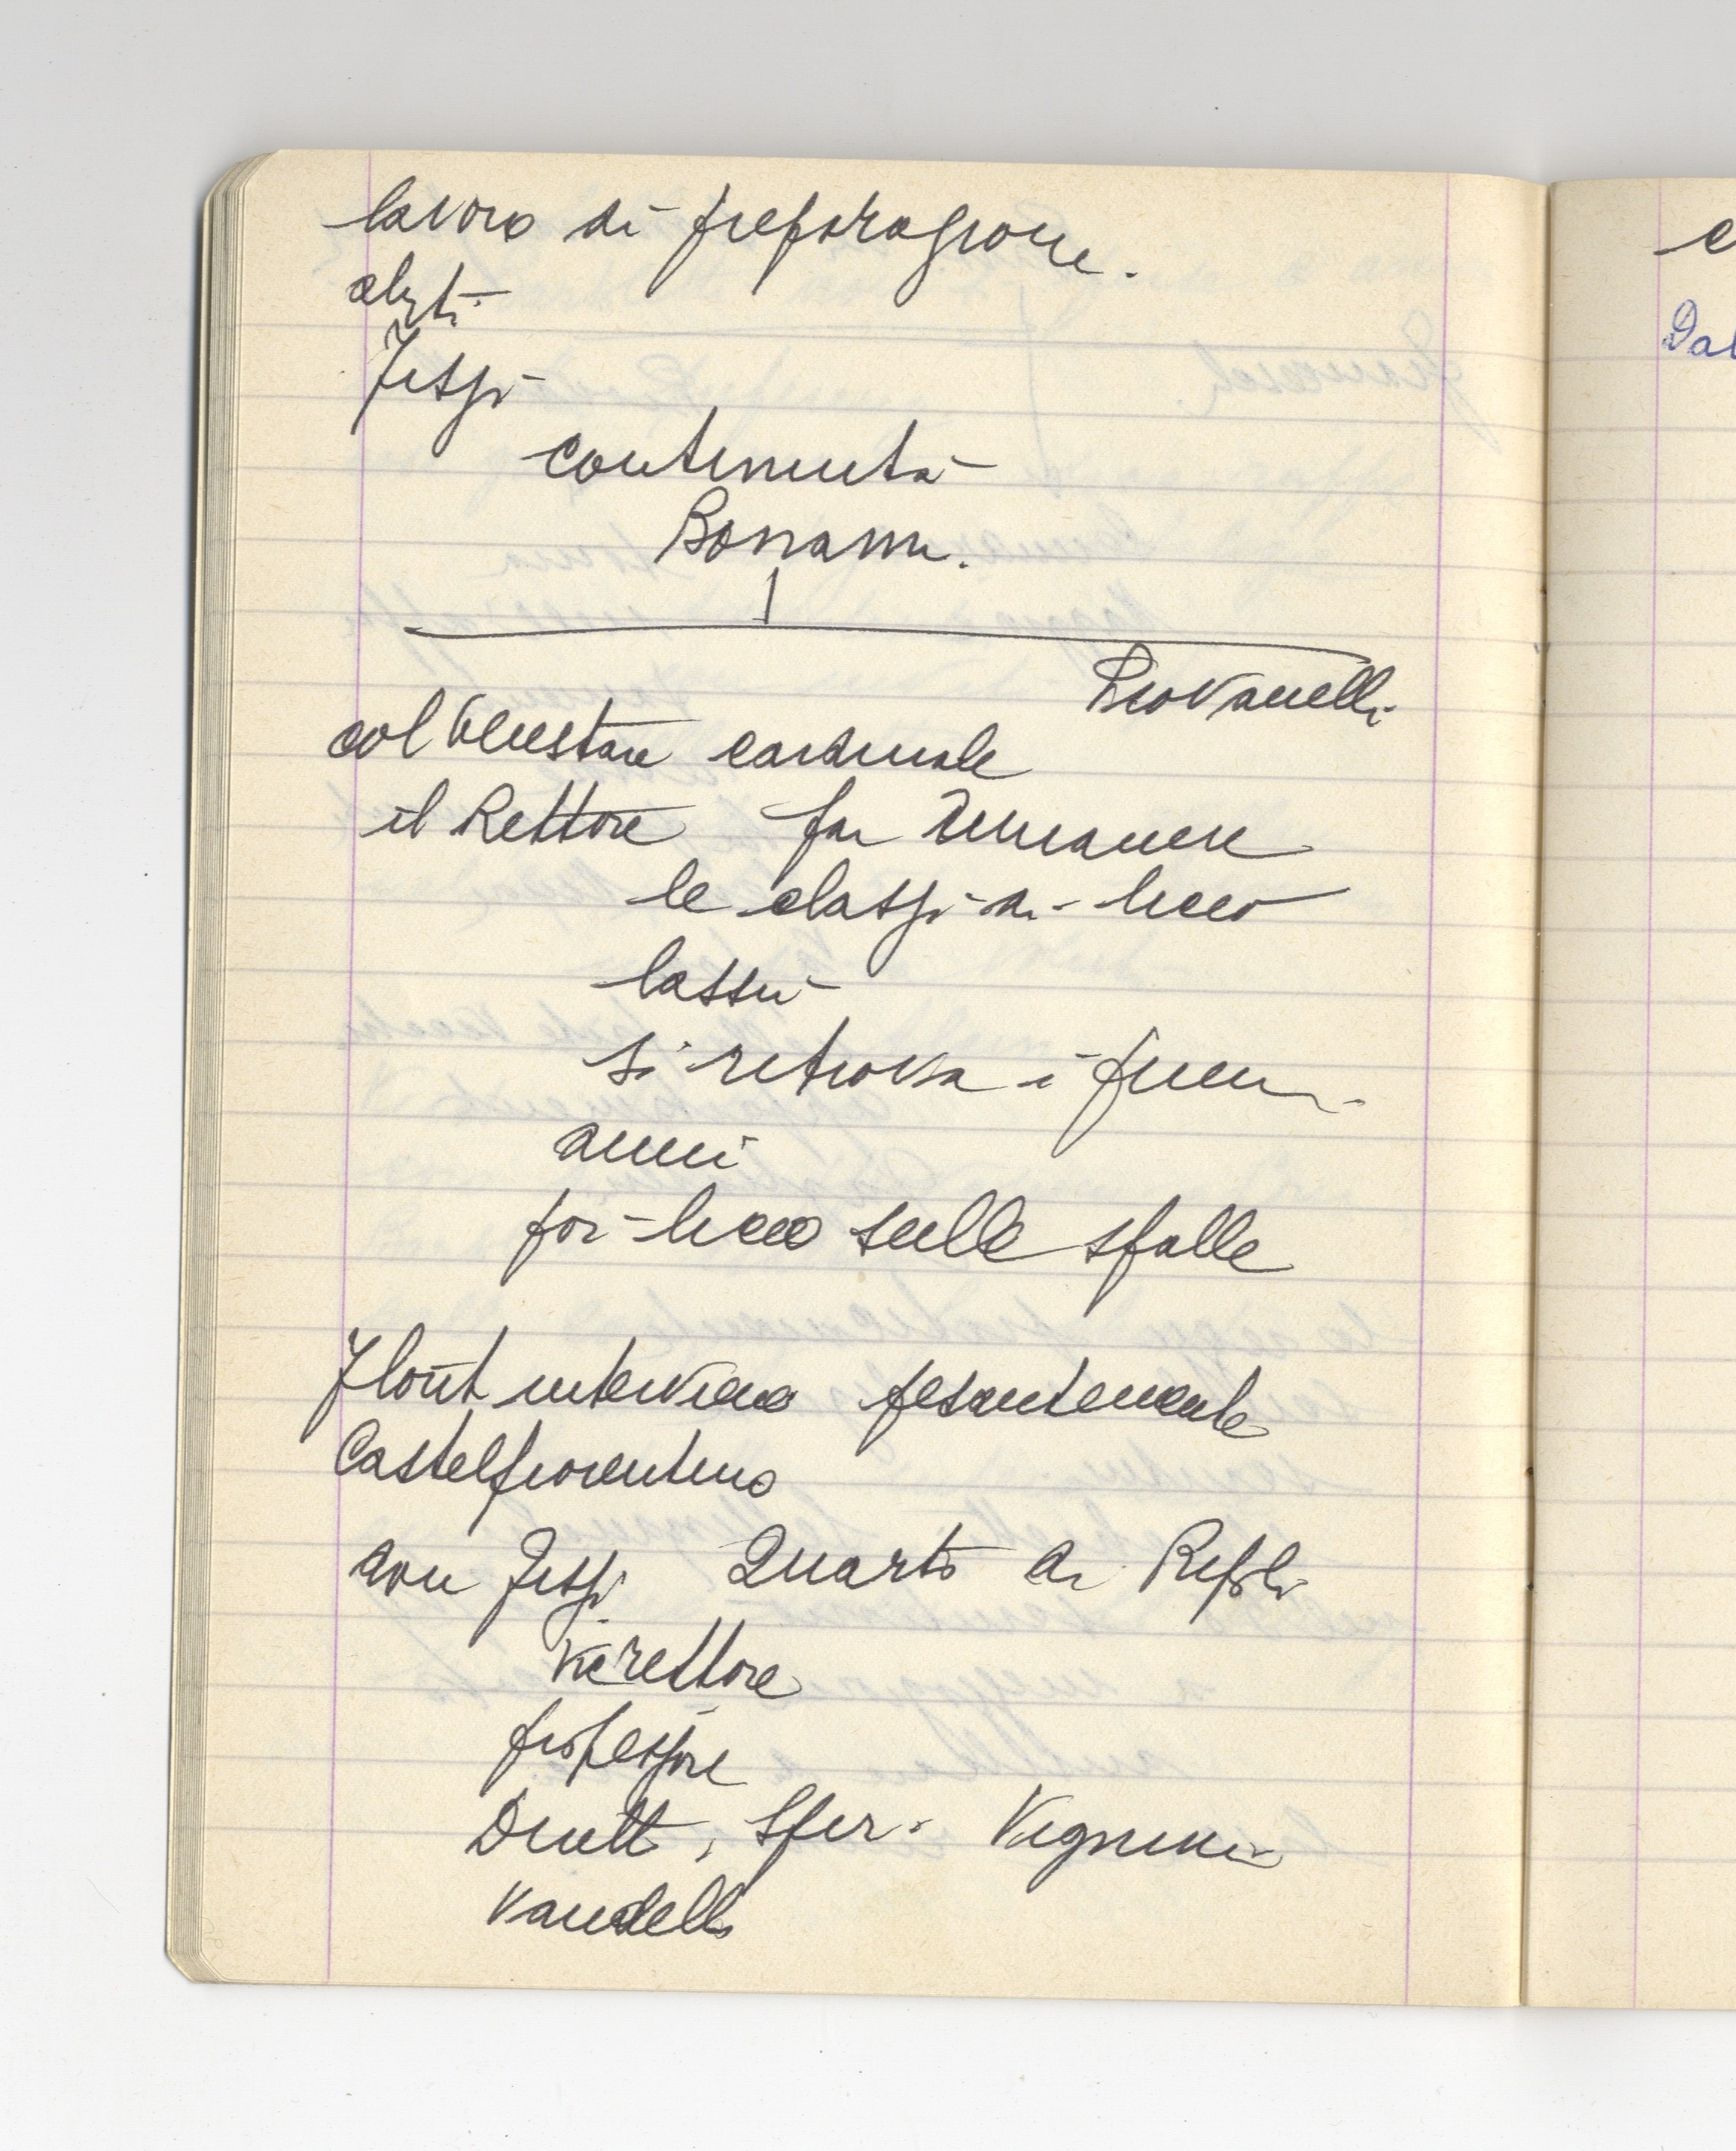 lavoro di preparazione.
Tessi
continuità
Bonanni.
Piovanelli
col Venestare cardinale
il Rettore fa rimanere
le classi di liceo
lassù
si ritrova i primi
anni
poi liceo sulle spalle
Florit interviene pesantemente
Castelfiorentino
don Tessi Quarto di Ripoli
vicerettore
professore
Dirett. Spir. Vignini
Vandelli
e
Dal